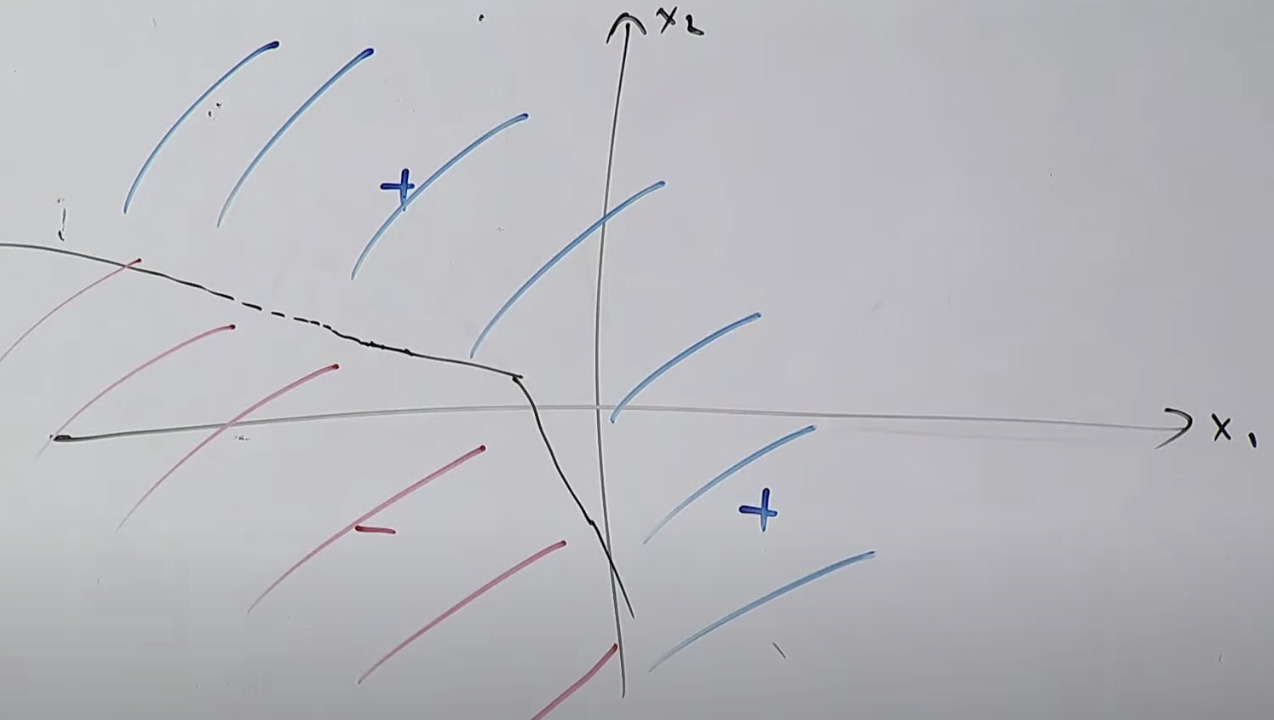 x₂
+
x₁
+
-